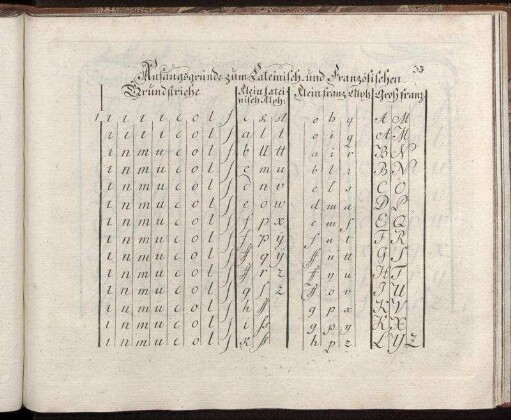 33
Anfangsgründe zum Lateinisch und Französischen
Grundstriche Klein latei= nisch Alph: Klein franz Alph Groß franz
o b q A M
i n m u c o l ſ a l t o i q A M
i n m u c o l ſ b u tt a i r B N
i n m u c o l ſ c m u b l r B N
i n m u c o l ſ d n v c l s C O
i n m u c o l ſ e o w d m D P
i n m u c o l ſ ſ p x e m ſ E Q
i n m u c o l ſ ſ p ÿ f u t F R
i n m u c o l ſ q ÿ u G S
i n m u c o l ſ r z ÿ u H T
i n m u c o l ſ g ſ z o v I U
i n m u c o l ſ h g o x K V
i n m u c o l ſ i g p y K X
i n m u c o l ſ k h p z L Y Z